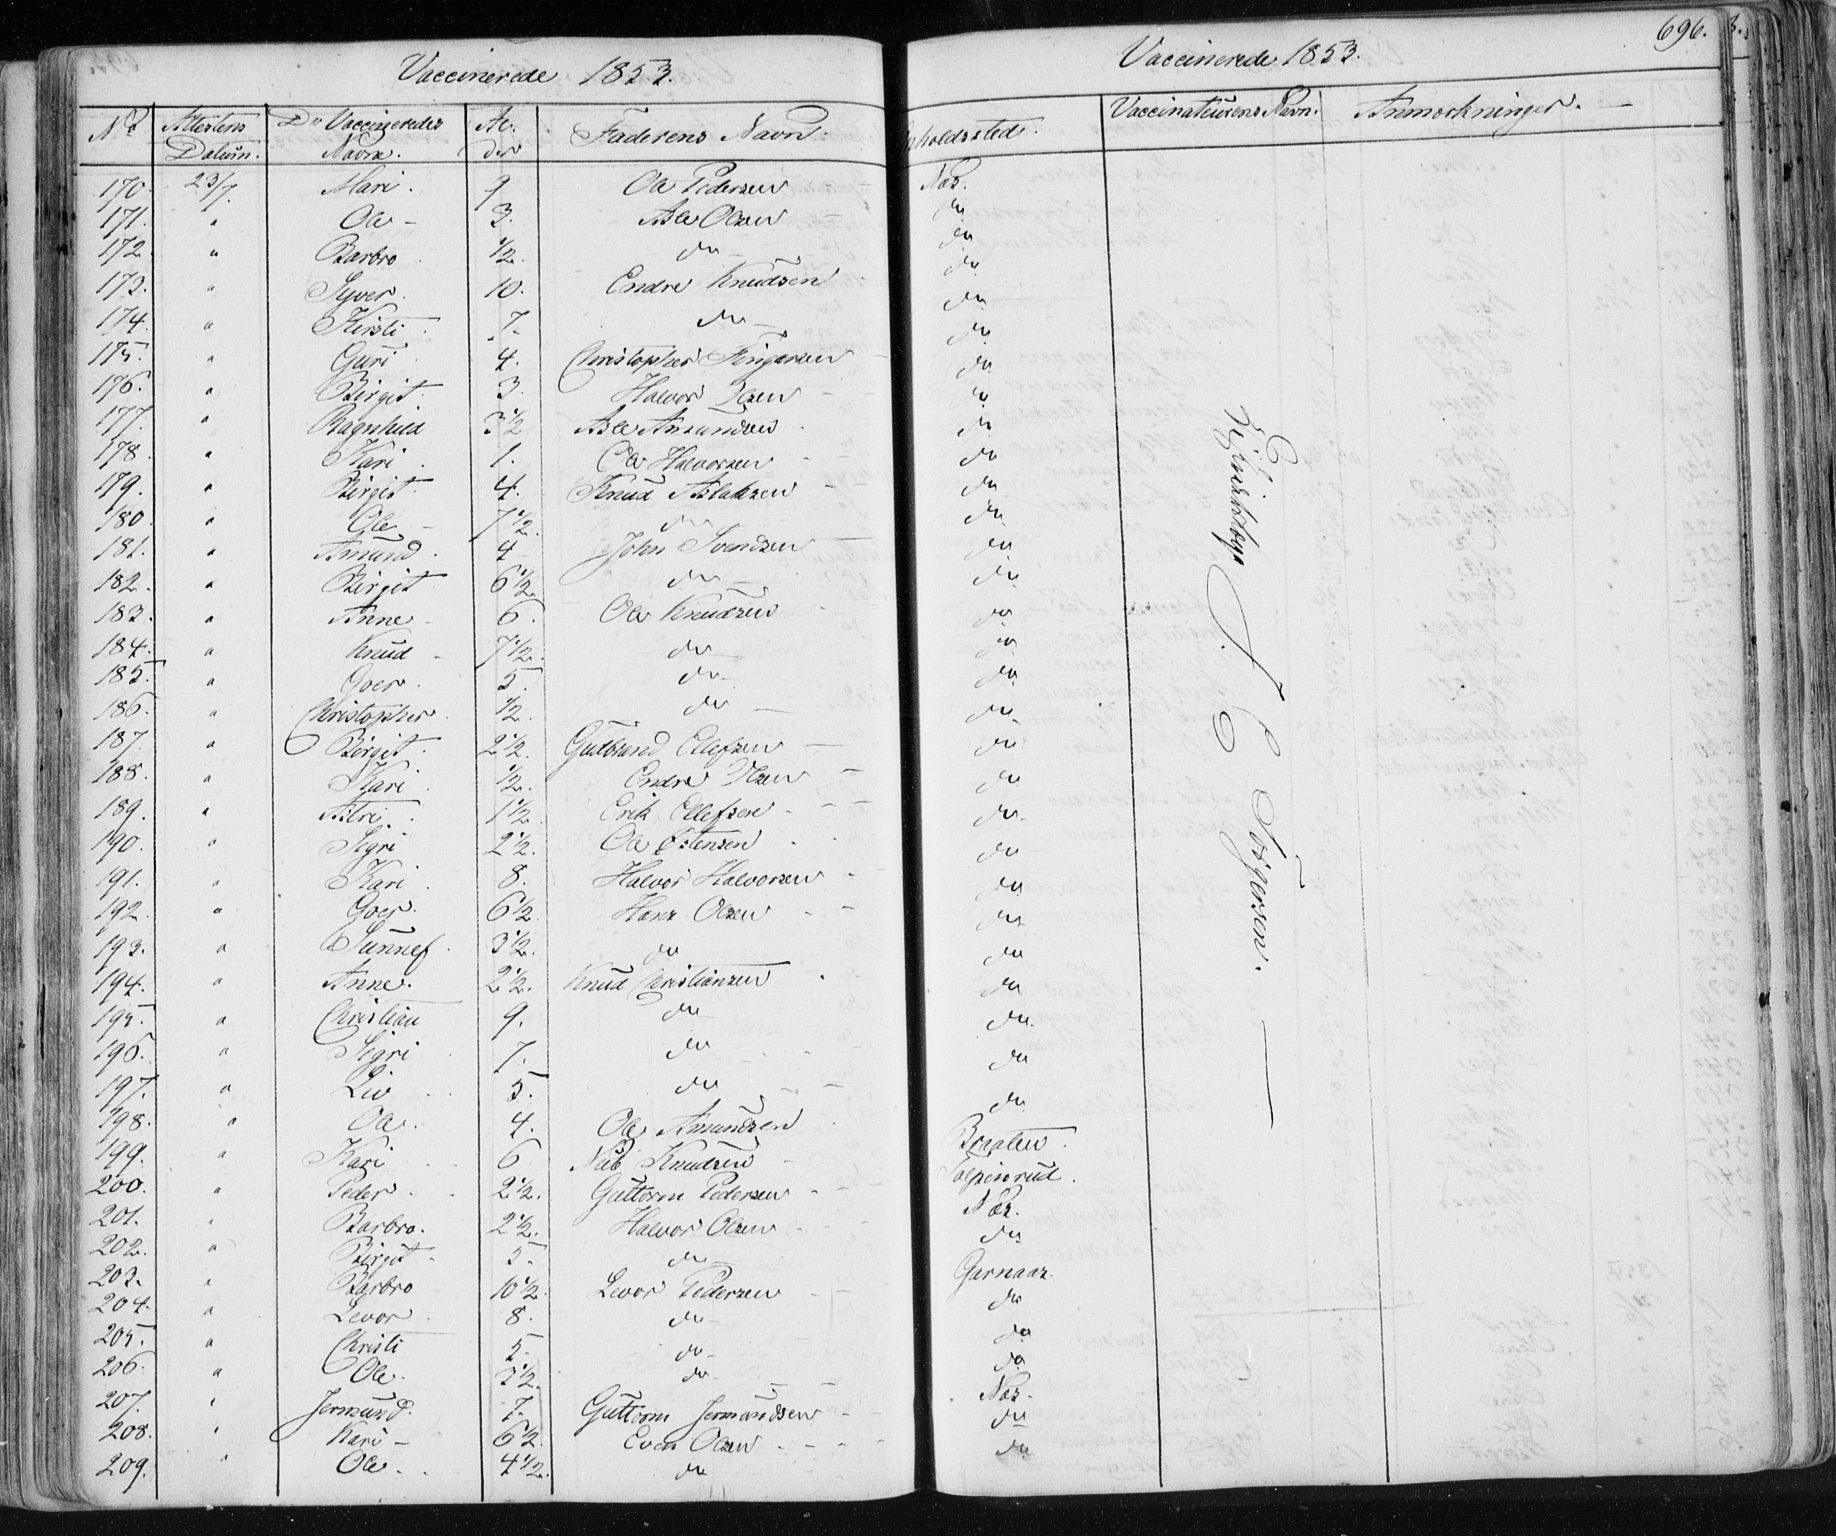 Vaccinerede 1853.
Vaccinerede 1853.
696.
No Attestens Datum. De Vaccineredes Navne. Al- der Faderens Navn. Opholdssted. Vaccinateurens Navn. Anmærkninger.
170. 23/7. Mari. 9. Ole Pedersen Næs.
171. " Ole 3. Asle Olsen do
172. " Barbro 1/2. do do
173. " Syver. 10. Endre Knudsen do
174. " Kirsti. 7. do do
175. " Guri 4. Christopher do
176. " Birgit. 3. Halvor Olsen do
177. " Ragnhild 3 1/2 Asle Amundsen do
178. " Kari. 1. Ole Halvorsen do
179. " Birgit. 4. Knud Aslaksen do
180. " Ole 7 1/2. do do
181. " Amund. 4 John Svendsen do
182. " Birgit 6 1/2. do do
183. " Anne 6. Ole Knudsen do
184. " Knud 7 1/2. do do
185. " Goer. 5. do do
186. " Christopher. 1/2. do do
187. " Birgit. 2 1/2. Gulbrand Ellefsen do
188. " Kari 1/2. Endre Olsen do
189. " Astri. 1 1/2. Erik Ellefsen do
190. " Sigri 2 1/2. Ole Østensen do
191. " Kari. 8. Halvor Halvorsen do
192. " Goer. 6 1/2. Hans Olsen do
193. " Sünnef. 3 1/2. do do
194. " Anne. 2 1/2. Knud Christiansen do
195. " Christian 9. do do
196. " Sigri 7. do do
197. " Liv 5. do do
198. " Ole. 4. Ole Amundsen Braaten.
199. " Kari 6 Nub Knudsen
200. " Peder. 2 1/2. Guttorm Pedersen Næs.
201. " Barbro. 2 1/2. Halvor Olsen do
202. " Birgit. 5. do
203. " Barbro 10 1/2. Levor Pedersen Garnaas.
204. " Levor. 8. do do
205. " Christi 5. do do
206. " Ole. 3 1/2. do do
207. " Jermund. 7. Guttorm Jermundsen Næs.
208. " Kari 6 1/2. Even Olsen do
209. " Ole. 4 1/2. do do
Torgersen.